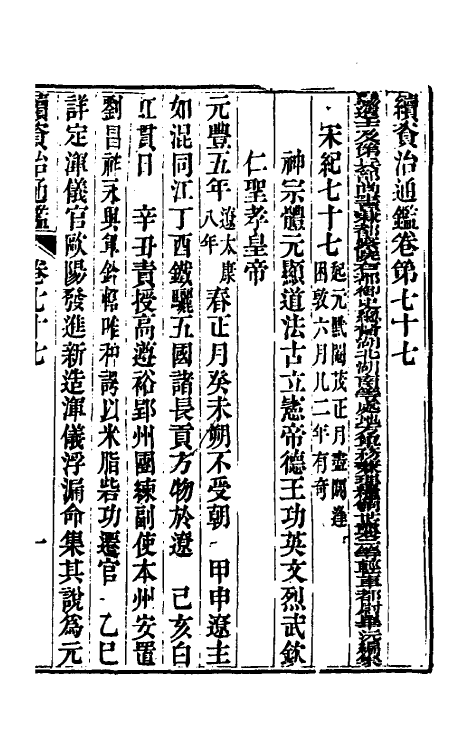 續資治通鑑卷第七十七
宋紀七十七起元黓閹茂正月盡閼逢困敦六月凡二年有奇
神宗體元顯道法古立憲帝德王功英文烈武欽
仁聖孝皇帝
元豐五年遼太康八年春正月癸未朔不受朝　甲申遼主
如混同江丁酉鐵驪五國諸長貢方物於遼　己亥白
虹貫日　辛丑責授高遵裕郢州團練副使本州安置
劉昌祚永興軍鈐轄唯种諤以米脂砦功遷官　乙巳
詳定渾儀官歐陽發進新造渾儀浮漏命集其說爲元
續資治通鑑　卷七十七　一